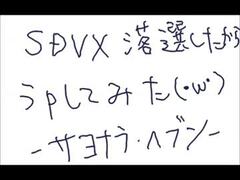 SDVX 落選したから
うpしてみた(・w・)
-サヨナラ・ヘブン-